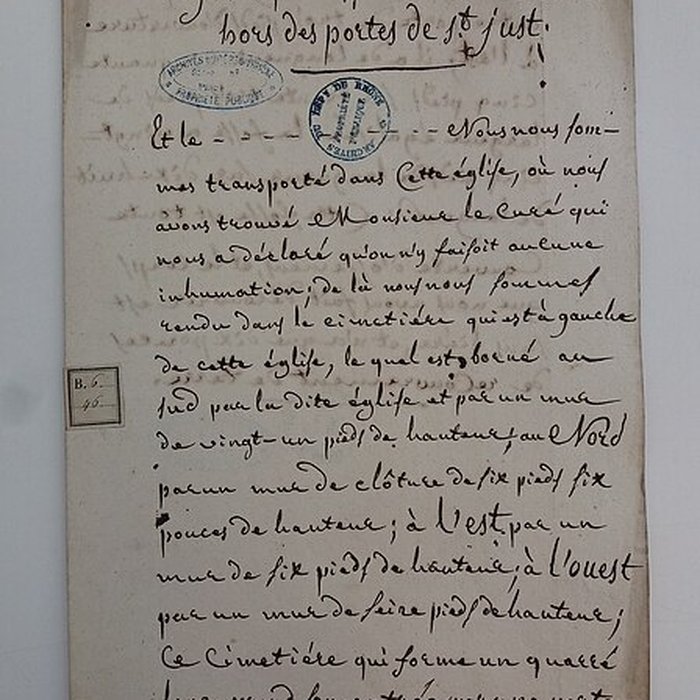 hors des portes de s.t just.
ARCHIVES
PROPRIÉTÉ PUBLIQUE
DU DEPT DU RHÔNE
PROPRIÉTÉ PUBLIQUE
ARCHIVES
Et le - - - - - - - - - - Nous nous som-
mes transporté dans Cette église, où nous
avons trouvé Monsieur le Curé qui
nous a déclaré qu'on n'y faisoit aucune
inhumation; de là nous nous sommes
rendu dans le cimetiére qui est à gauche
de cette église, le quel est borné au
B. 6.
46.
sud par la dite église et par un mur
de vingt-un pieds de hauteur; au Nord
par un mur de clôture de six pieds six
pouces de hauteur; à l'est par un
mur de six pieds de hauteur; à l'ouest
par un mur de seize pieds de hauteur;
Ce Cimetiére qui forme un quarré